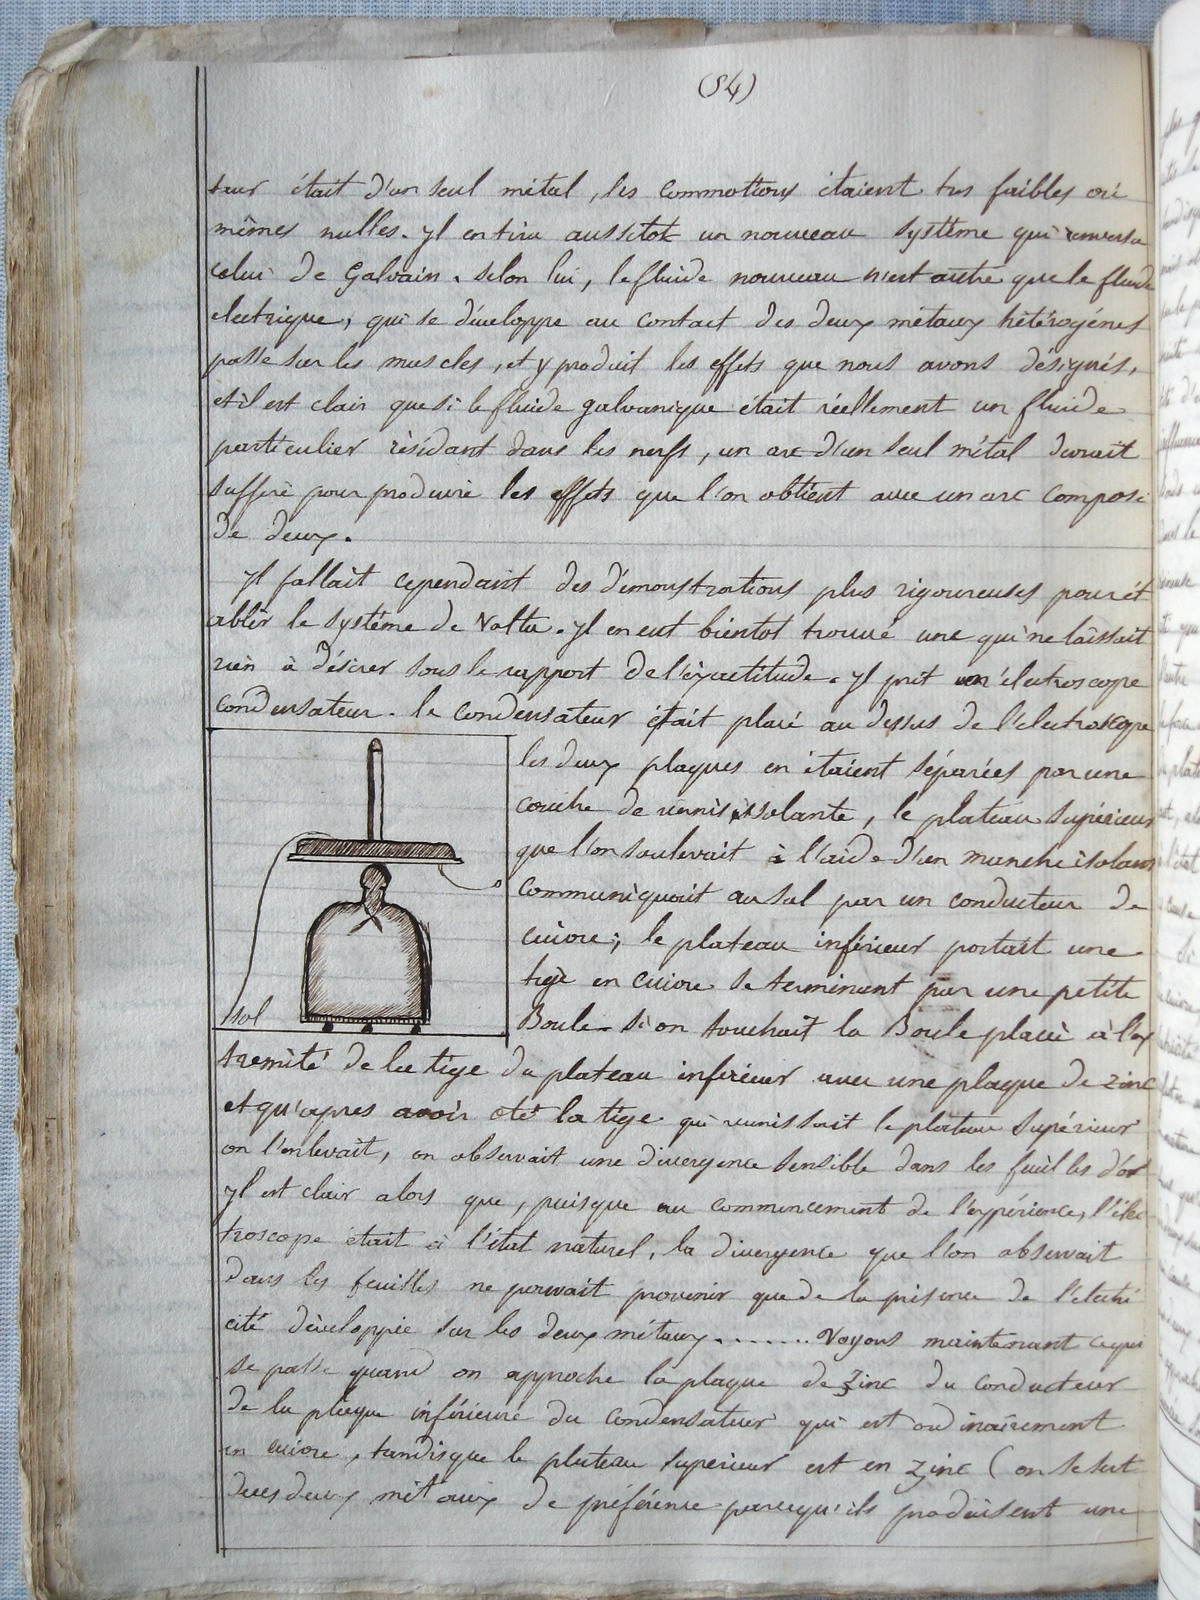 (84)
teur était d'un seul métal, les commotions étaient très faibles ou
mêmes nulles. yl en tira aussitôt un nouveau système qui renversa
celui de Galvain. selon lui, le fluide nouveau n'est autre que le fluide
electrique, qui se développe au contact des deux métaux hétérogénes
passe sur les muscles, et y produit les effets que nous avons désignés,
et il est clair que si le fluide galvanique était réellement un fluide
particulier résidant dans les nerfs, un arc d'un seul métal devrait
suffire pour produire les effets que l'on obtient avec un arc composé
de deux.
yl fallait cependant des démonstrations plus rigoureuses pour ét
ablir le système de Volta. yl en eut bientot trouvé une qui ne laissait
rien à désirer sous le rapport de l'exactitude. yl prit un électroscope
condensateur. le condensateur était placé au dessus de l'electroscope
les deux plaques en étaient séparées par une
couche de vernis isolante, le plateau supérieur
que l'on soulevait à l'aide d'un manche isolant
communiquait au sol par un conducteur de
cuivre; le plateau inférieur portait une
tige en cuivre se terminant par une petite
Boule. Si on touchait la Boule placée à l'ex
sol
tremité de la tige du plateau inférieur avec une plaque de zinc
et qu'apres avoir oté la tige qui reunissait le plateau supérieur
on l'enlevait, on observait une divergence sensible dans les feuilles d'or
yl est clair alors que, puisque au commencement de l'expérience, l'élec
troscope était à l'état naturel, la divergence que l'on observait
dans les feuilles ne pouvait provenir que de la présence de l'électri
cité développée sur les deux métaux....... Voyons maintenant ce qui
se passe quand on approche la plaque de zinc du conducteur
de la plaque inférieure du condensateur qui est ordinairement
en cuivre, tandisque le plateau supérieur est en zinc (on se sert
de ces deux métaux de préférence parcequ'ils produisent une